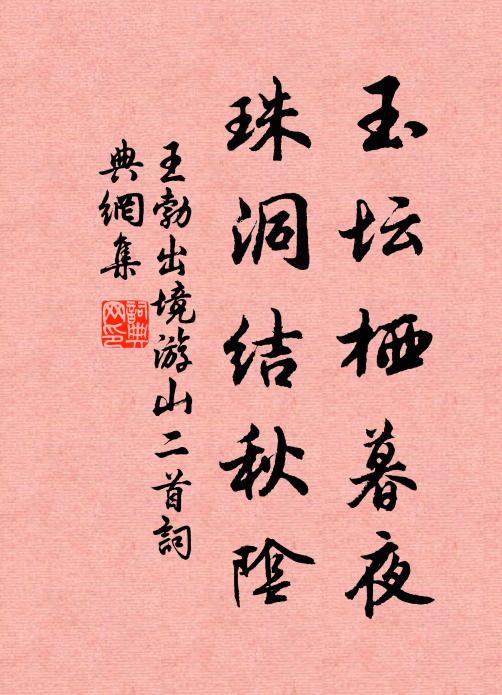 玉坛栖暮夜
珠洞结秋陰
王勃出境游山二首詞
典網集
詞典网印